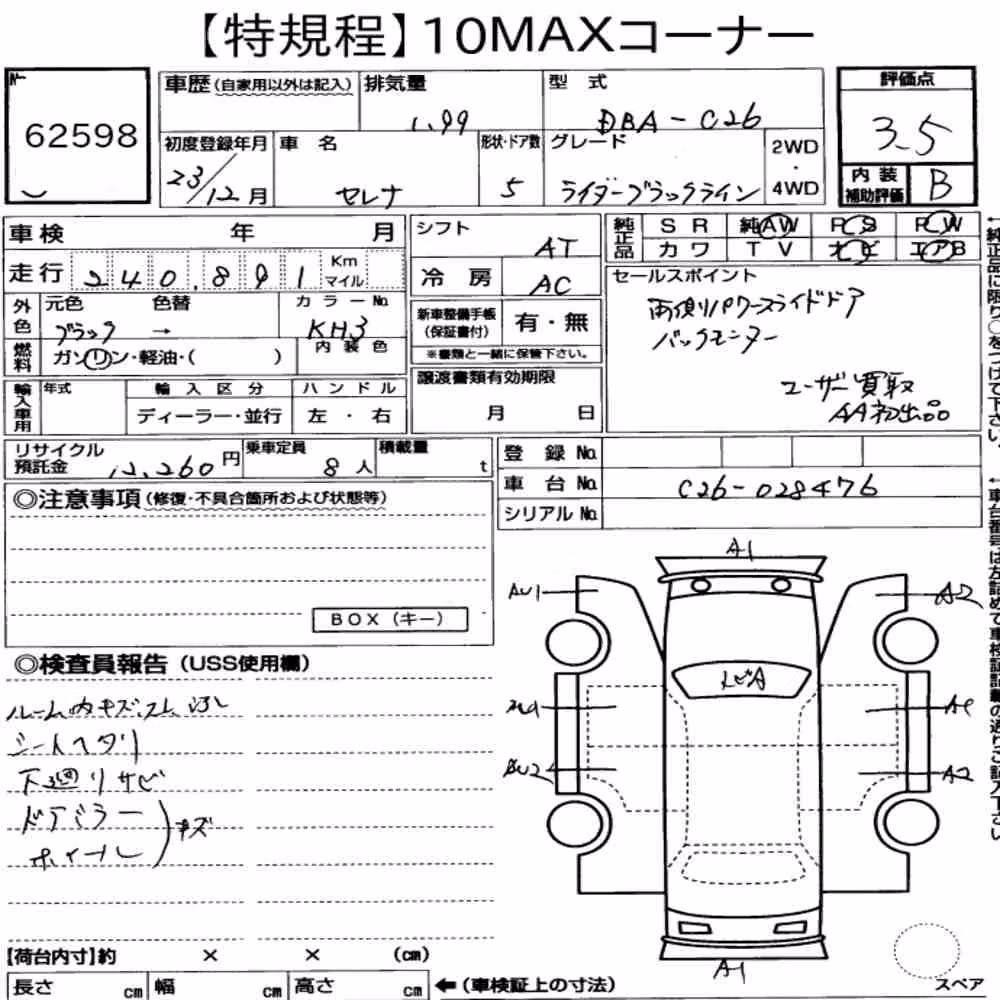 【特規程】10MAXコーナー
62598
車歴(自家用以外は記入) 排気量 1.99 型式 DBA-C26
評価点 3.5
初度登録年月 23/12月 車名 セレナ 形状・ドア数 5 グレード ライダーブラックライン 2WD・4WD
内装補助評価 B
車検 年 月
走行 240,891 Km マイル
シフト AT
冷房 AC
純正品 SR 純AW PS PW
カワ TV ナビ エアB
外色 元色 ブラック → 色替 カラーNo. KH3
燃料 ガソリン・軽油・( ) 内装色
新車整備手帳(保証書付) 有・無
※書類と一緒に保管下さい。
セールスポイント
両側パワースライドドア
バックモニター
ユーザー買取
AA初出品
輸入車用 年式 輸入区分 ディーラー・並行 ハンドル 左・右
譲渡書類有効期限
月 日
リサイクル預託金 12,260円 乗車定員 8人 積載量 t
登録No.
車台No. C26-028476
シリアルNo.
◎注意事項(修復・不具合箇所および状態等)
BOX(キー)
◎検査員報告(USS使用欄)
ルーム内キズ、スレ、汚レ
シートヘタリ
下廻りサビ
ドアミラー
ホイール
キズ
A1
AU1
A2
トビA
A1
AU2
A2
A1
スペア
【荷台内寸】約 × × (cm)
長さ cm 幅 cm 高さ cm ←(車検証上の寸法)
←純正品に限り○をつけて下さい。
←車台番号は左詰めで車検証記載の通りご記入下さい